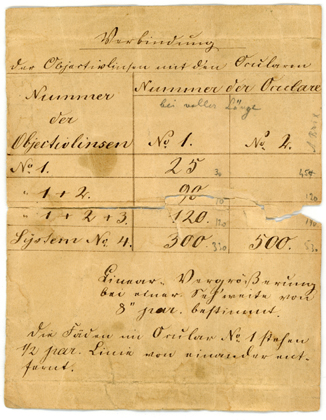 Verbindung
der Objectivlinsen mit den Ocularen
Nummer der Objectivlinsen
Nummer der Oculare
bei voller Länge
No 1. No 2.
No 1. 25 30
" 1 + 2. 90
" 1 + 2 + 3 120.
System No 4. 300 500.
Linear-Vergrößerung
bei einer Sehweite von
8" par. bestimmt.
Die Fäden im Ocular No 1 stehen
1/2 par. Linie von einander ent-
fernt.